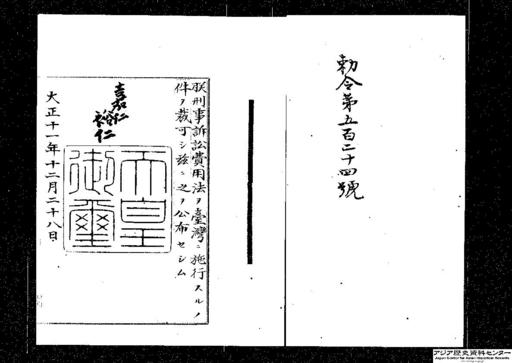 勅令第五百二十四號
朕刑事訴訟費用法ヲ臺灣ニ施行スルノ
件ヲ裁可シ茲ニ之ヲ公布セシム
嘉仁
裕仁
天皇
御璽
大正十一年十二月二十八日
アジア歴史資料センター
Japan Center for Asian Historical Records